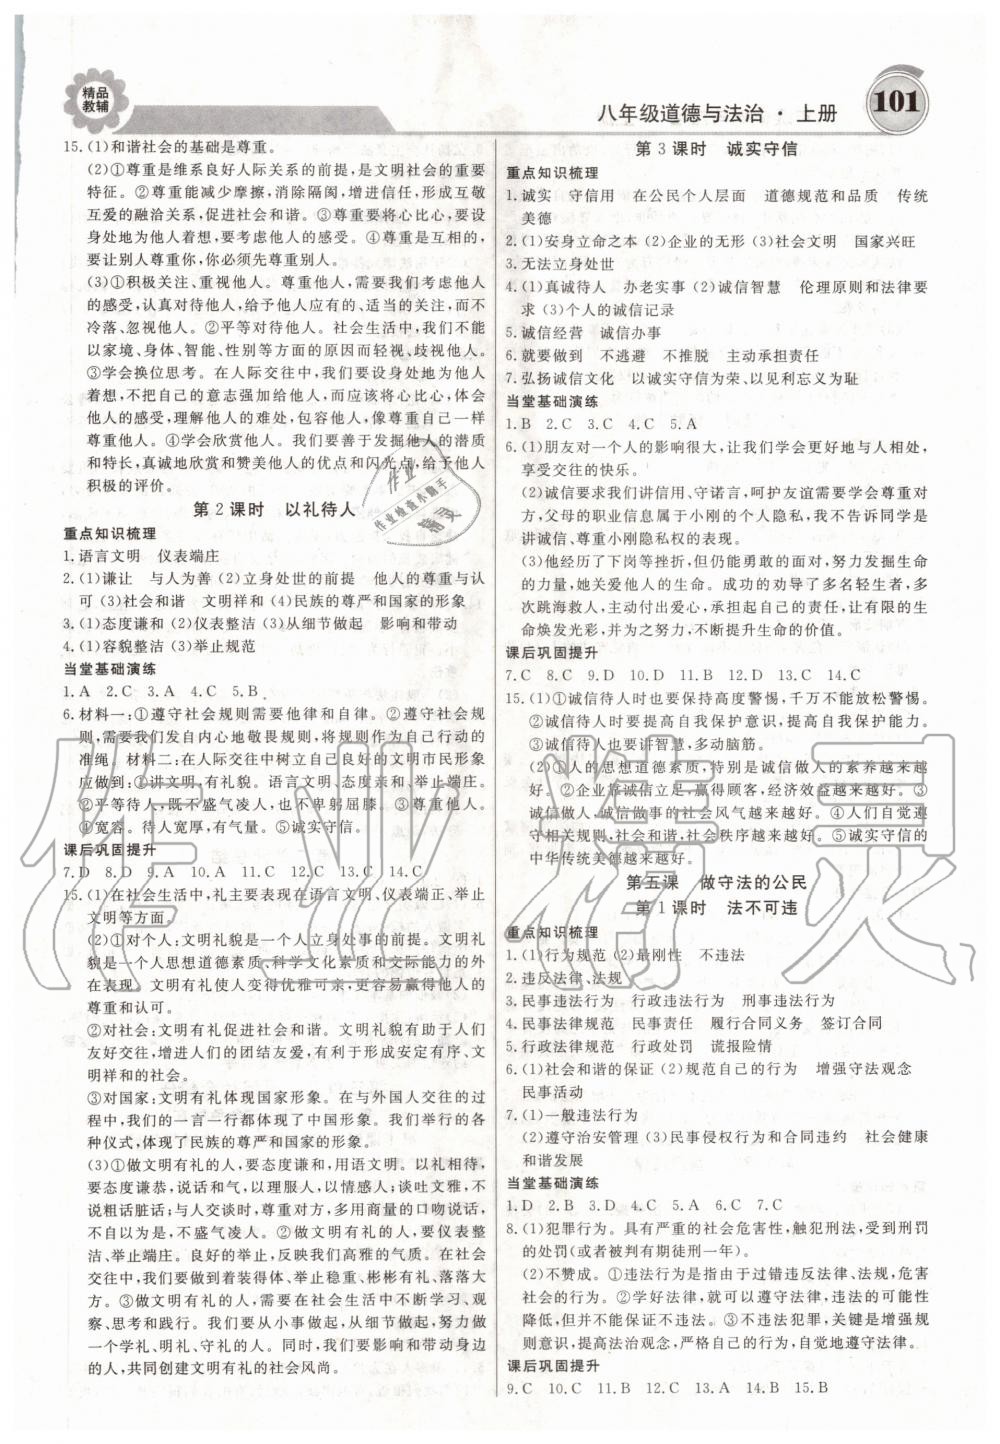 精品
教辅
八年级道德与法治·上册
101
15.(1)和谐社会的基础是尊重。
(2)①尊重是维系良好人际关系的前提,是文明社会的重要
特征。②尊重能减少摩擦,消除隔阂,增进信任,形成互敬
互爱的融洽关系,促进社会和谐。③尊重要将心比心,要设
身处地为他人着想,要考虑他人的感受。④尊重是互相的,
要让别人尊重你,你必须先尊重别人。
(3)①积极关注、重视他人。尊重他人,需要我们考虑他人
的感受,认真对待他人,给予他人应有的、适当的关注,而不
冷落、忽视他人。②平等对待他人。社会生活中,我们不能
以家境、身体、智能、性别等方面的原因而轻视、歧视他人。
③学会换位思考。在人际交往中,我们要设身处地为他人
着想,不把自己的意志强加给他人,而应该将心比心,体会
他人的感受,理解他人的难处,包容他人,像尊重自己一样
尊重他人。④学会欣赏他人。我们要善于发掘他人的潜质
和特长,真诚地欣赏和赞美他人的优点和闪光点,给予他人
积极的评价。
第2课时 以礼待人
重点知识梳理
1.语言文明 仪表端庄
2.(1)谦让 与人为善 (2)立身处世的前提 他人的尊重与认
可 (3)社会和谐 文明祥和 (4)民族的尊严和国家的形象
3.(1)态度谦和 (2)仪表整洁 (3)从细节做起 影响和带动
4.(1)容貌整洁 (3)举止规范
当堂基础演练
1.A 2.C 3.A 4.C 5.B
6.材料一:①遵守社会规则需要他律和自律。②遵守社会规
则,需要我们发自内心地敬畏规则,将规则作为自己行动的
准绳。材料二:在人际交往中树立自己良好的文明市民形象
应做到:①讲文明,有礼貌。语言文明、态度亲和、举止端庄。
②平等待人,既不盛气凌人,也不卑躬屈膝。③尊重他人。
④宽容。待人宽厚,有气量。⑤诚实守信。
课后巩固提升
7.D 8.D 9.D 10.A 11.B 12.A 13.C 14.C
15.(1)在社会生活中,礼主要表现在语言文明、仪表端正、举止
文明等方面。
(2)①对个人:文明礼貌是一个人立身处事的前提。文明礼
貌是一个人思想道德素质、科学文化素质和交际能力的外
在表现。文明有礼使人变得优雅可亲,更容易赢得他人的
尊重和认可。
②对社会:文明有礼促进社会和谐。文明礼貌有助于人们
友好交往,增进人们的团结友爱,有利于形成安定有序、文
明祥和的社会。
③对国家:文明有礼体现国家形象。在与外国人交往的过
程中,我们的一言一行都体现了中国形象。我们举行的各
种仪式,体现了民族的尊严和国家的形象。
(3)①做文明有礼的人,要态度谦和,用语文明。以礼相待,
要态度谦恭,说话和气,以理服人,以情感人;谈吐文雅,不
说粗话脏话;与人交谈时,尊重对方,多用商量的口吻说话,
不自以为是,不盛气凌人。②做文明有礼的人,要仪表整
洁、举止端庄。良好的举止,能展示我们高雅的气质。在社会
交往中,我们要做到着装得体、举止稳重、彬彬有礼、落落大
方。③做文明有礼的人,需要在社会生活中不断学习、观
察、思考和践行。我们要从小事做起,从细节做起,努力做
一个学礼、明礼、守礼的人。同时,我们要影响和带动身边
的人,共同创建文明有礼的社会风尚。
第3课时 诚实守信
重点知识梳理
1.诚实 守信用 在公民个人层面 道德规范和品质 传统
美德
2.(1)安身立命之本 (2)企业的无形 (3)社会文明 国家兴旺
3.无法立身处世
4.(1)真诚待人 办老实事 (2)诚信智慧 伦理原则和法律要
求 (3)个人的诚信记录
5.诚信经营 诚信办事
6.就要做到 不逃避 不推脱 主动承担责任
7.弘扬诚信文化 以诚实守信为荣、以见利忘义为耻
当堂基础演练
1.B 2.C 3.C 4.C 5.A
6.(1)朋友对一个人的影响很大,让我们学会更好地与人相处,
享受交往的快乐。
(2)诚信要求我们讲信用、守诺言,呵护友谊需要学会尊重对
方,父母的职业信息属于小刚的个人隐私,我不告诉同学是
讲诚信、尊重小刚隐私权的表现。
(3)他经历了下岗等挫折,但仍能勇敢的面对,努力发掘生命
的力量,她关爱他人的生命。成功的劝导了多名轻生者,多
次跳海救人,主动付出爱心,承担起自己的责任,让有限的生
命焕发光彩,并为之努力,不断提升生命的价值。
课后巩固提升
7.C 8.C 9.D 10.D 11.B 12.D 13.C 14.C
15.(1)①诚信待人时也要保持高度警惕,千万不能放松警惕。
②诚信待人时要提高自我保护意识,提高自我保护能力。
③诚信待人也要讲智慧,多动脑筋。
(2)①人的思想道德素质,特别是诚信做人的素养越来越
好。②企业靠诚信立足,赢得顾客,经济效益越来越好。③
诚信做人,诚信做事的社会风气越来越好。④人们自觉遵
守相关规则,社会和谐,社会秩序越来越好。⑤诚实守信的
中华传统美德越来越好。
第五课 做守法的公民
第1课时 法不可违
重点知识梳理
1.(1)行为规范 (2)最刚性 不违法
2.违反法律、法规
3.民事违法行为 行政违法行为 刑事违法行为
4.民事法律规范 民事责任 履行合同义务 签订合同
5.行政法律规范 行政处罚 谎报险情
6.(1)社会和谐的保证 (2)规范自己的行为 增强守法观念
民事活动
7.(1)一般违法行为
(2)遵守治安管理 (3)民事侵权行为和合同违约 社会健康
和谐发展
当堂基础演练
1.D 2.B 3.D 4.C 5.A 6.C 7.B
8.(1)犯罪行为。具有严重的社会危害性,触犯刑法,受到刑罚
的处罚(或者被判有期徒刑一年)。
(2)不赞成。①违法行为是指由于过错违反法律、法规,危害
社会的行为。②学好法律,就可以遵守法律,违法的可能性
降低,但并不能保证不违法。③不违法犯罪,关键是增强规
则意识,提高法治观念,严格自己的行为,自觉地遵守法律。
课后巩固提升
9.C 10.C 11.B 12.C 13.A 14.B 15.B
作业
作业检查小助手
精灵
作业精灵